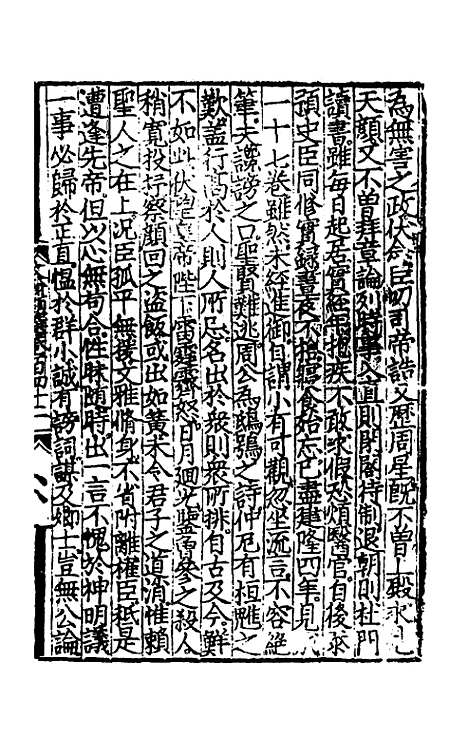 為無害之政伏念臣叨司帝誥又歷周星既不曾上殿求見
天顏又不曾拜章論列時事入直則閉閣待制退朝則杜門
讀書雖每日起居實經年抱疾不敢求假恐煩醫官自後忝
預史臣同修實錄晝夜不捨寢食殆忘已盡建隆四年見
一十七卷雖然未經進御自謂小有可觀忽坐流言不容絕
筆夫謗謗之口聖賢難逃周公為鴟鴞之詩仲尼有桓魋之
歎蓋行高於人則人所忌名出於衆則衆所排自古及今鮮
不如此伏望皇帝陛下雷霆霽怒日月迴光鑒曾參之殺人
稍寬投杼察顏回之盜飯或出如簧未令君子之道消惟賴
聖人之在上況臣孤平無援文雅脩身不省附離權臣秪是
遭逢先帝但以心無苟合性昧随時出一言不愧於神明議
一事必歸於正直慍於群小誠有謗詞謀及卿士豈無公論